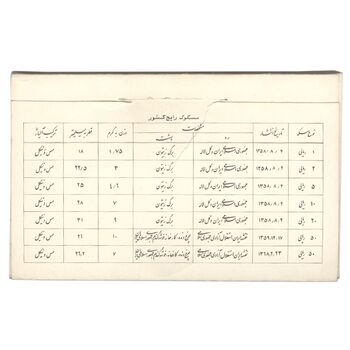 مسکوک رایج کشور
نوع سکه تاریخ انتشار مشخصات وزن به گرم قطر به میلیمتر ترکیب آلیاژ
رو پشت
۱ ریالی ۱۳۵۸،۰۸،۰۲ جمهوری اسلامی ایران و گل لاله برگ زیتون ۱/۷۵ ۱۸ مس و نیکل
۲ ریالی ۱۳۵۸،۰۸،۰۲ جمهوری اسلامی ایران و گل لاله برگ زیتون ۳ ۲۲/۵ مس و نیکل
۵ ریالی ۱۳۵۸،۰۸،۰۲ جمهوری اسلامی ایران و گل لاله برگ زیتون ۴/۶ ۲۵ مس و نیکل
۱۰ ریالی ۱۳۵۸،۰۸،۰۲ جمهوری اسلامی ایران و گل لاله برگ زیتون ۷ ۲۸ مس و نیکل
۲۰ ریالی ۱۳۵۸،۰۸،۰۲ جمهوری اسلامی ایران و گل لاله برگ زیتون ۹ ۳۱ مس و نیکل
۵۰ ریالی ۱۳۵۹،۱۲،۱۷ نقشه ایران استقلال آزادی جمهوری اسلامی ۱۰ ۲۶ مس و نیکل
۵۰ ریالی ۱۳۶۸،۲،۲۳ نقشه ایران استقلال آزادی جمهوری اسلامی ۷ ۲۶،۲ مس و نیکل